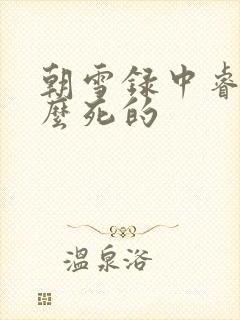 朝雪录中睿
麼死的
温泉浴